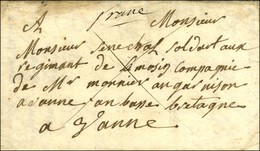 franc
A Monsieur
Monsieur Senechal soldat aux
regimant de Limosin Compagnie
de Mr monnier au garnison
a vanne an basse bretagne
a vanne